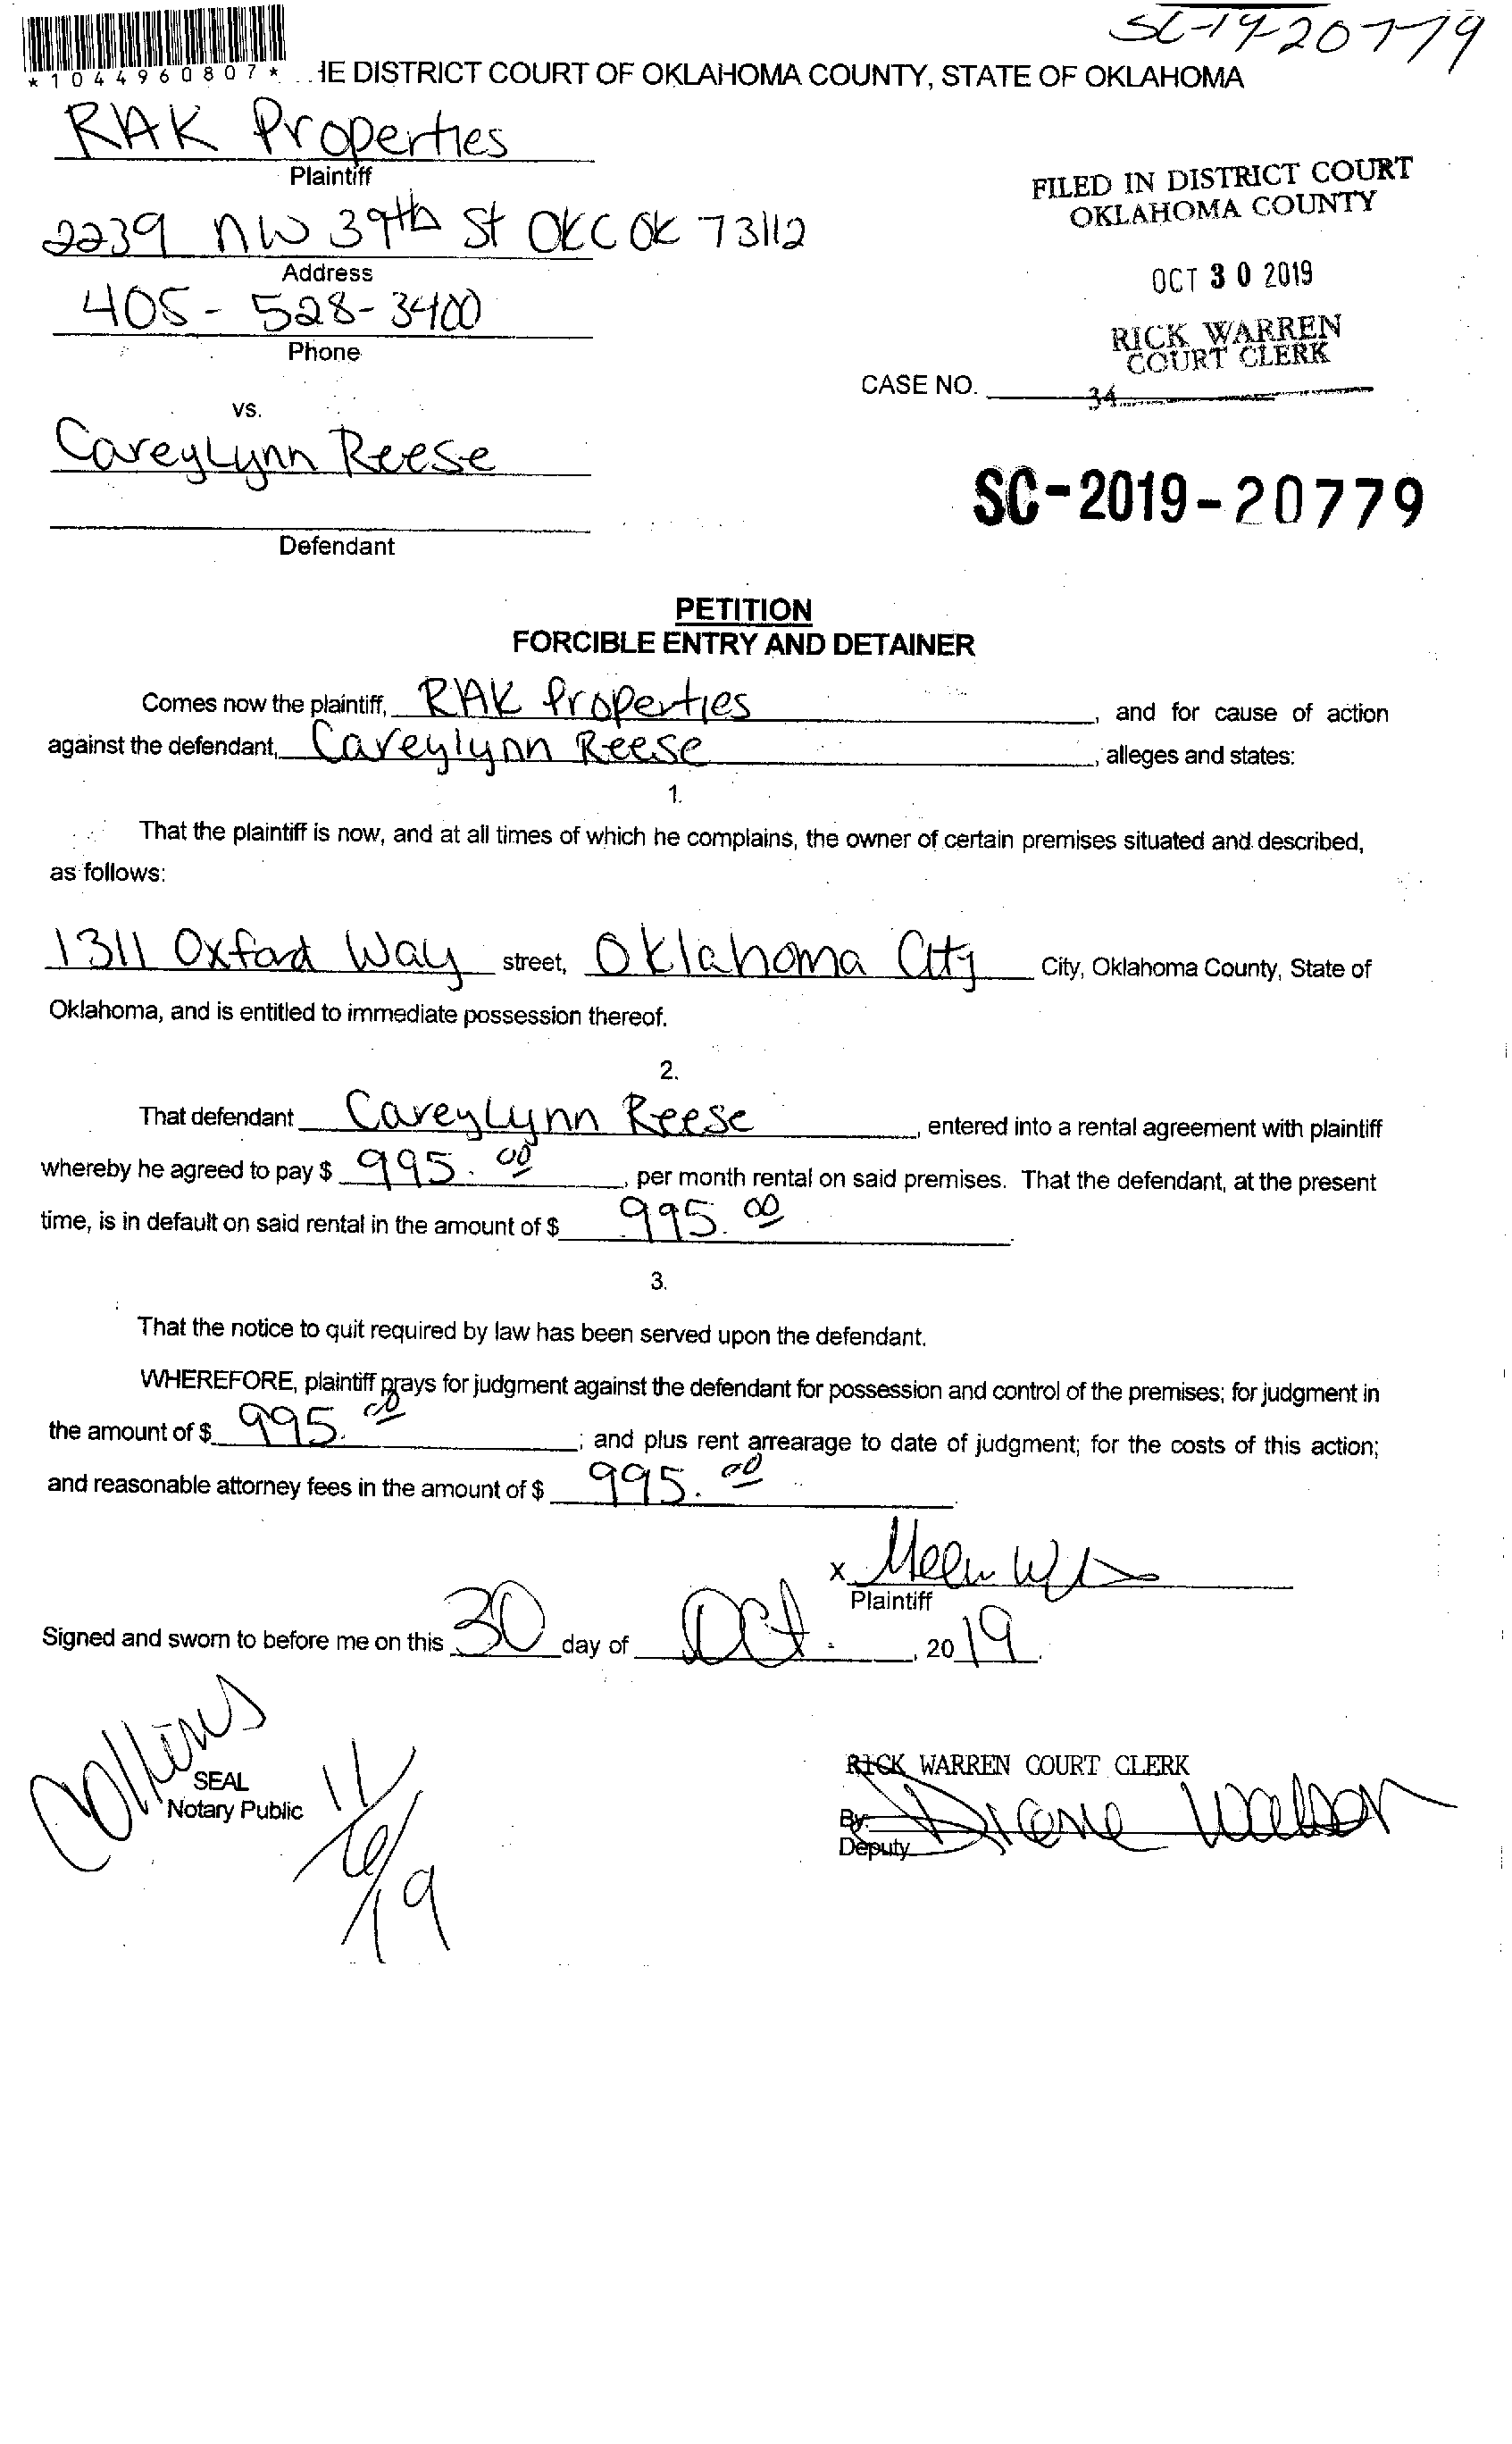 SC-19-20779
*1044960807* IE DISTRICT COURT OF OKLAHOMA COUNTY, STATE OF OKLAHOMA
RAK Properties
Plaintiff
FILED IN DISTRICT COURT
OKLAHOMA COUNTY
2239 NW 39th St OKC OK 73112
Address
OCT 30 2019
405-528-3400
Phone
RICK WARREN
COURT CLERK
CASE NO.
34
vs.
CareyLynn Reese
SC-2019-20779
Defendant
PETITION
FORCIBLE ENTRY AND DETAINER
Comes now the plaintiff, RAK Properties, and for cause of action
against the defendant, Careylynn Reese, alleges and states:
1.
That the plaintiff is now, and at all times of which he complains, the owner of certain premises situated and described,
as follows:
1311 Oxford Way street, Oklahoma City City, Oklahoma County, State of
Oklahoma, and is entitled to immediate possession thereof.
2.
That defendant CareyLynn Reese, entered into a rental agreement with plaintiff
whereby he agreed to pay $ 995.00, per month rental on said premises. That the defendant, at the present
time, is in default on said rental in the amount of $ 995.00
3.
That the notice to quit required by law has been served upon the defendant.
WHEREFORE, plaintiff prays for judgment against the defendant for possession and control of the premises; for judgment in
the amount of $ 995.00; and plus rent arrearage to date of judgment; for the costs of this action;
and reasonable attorney fees in the amount of $ 995.00
x
Plaintiff
Signed and sworn to before me on this 30 day of Oct., 2019.
Collins
SEAL
Notary Public
11/
/19
RICK WARREN COURT CLERK
By: Diane Walson
Deputy